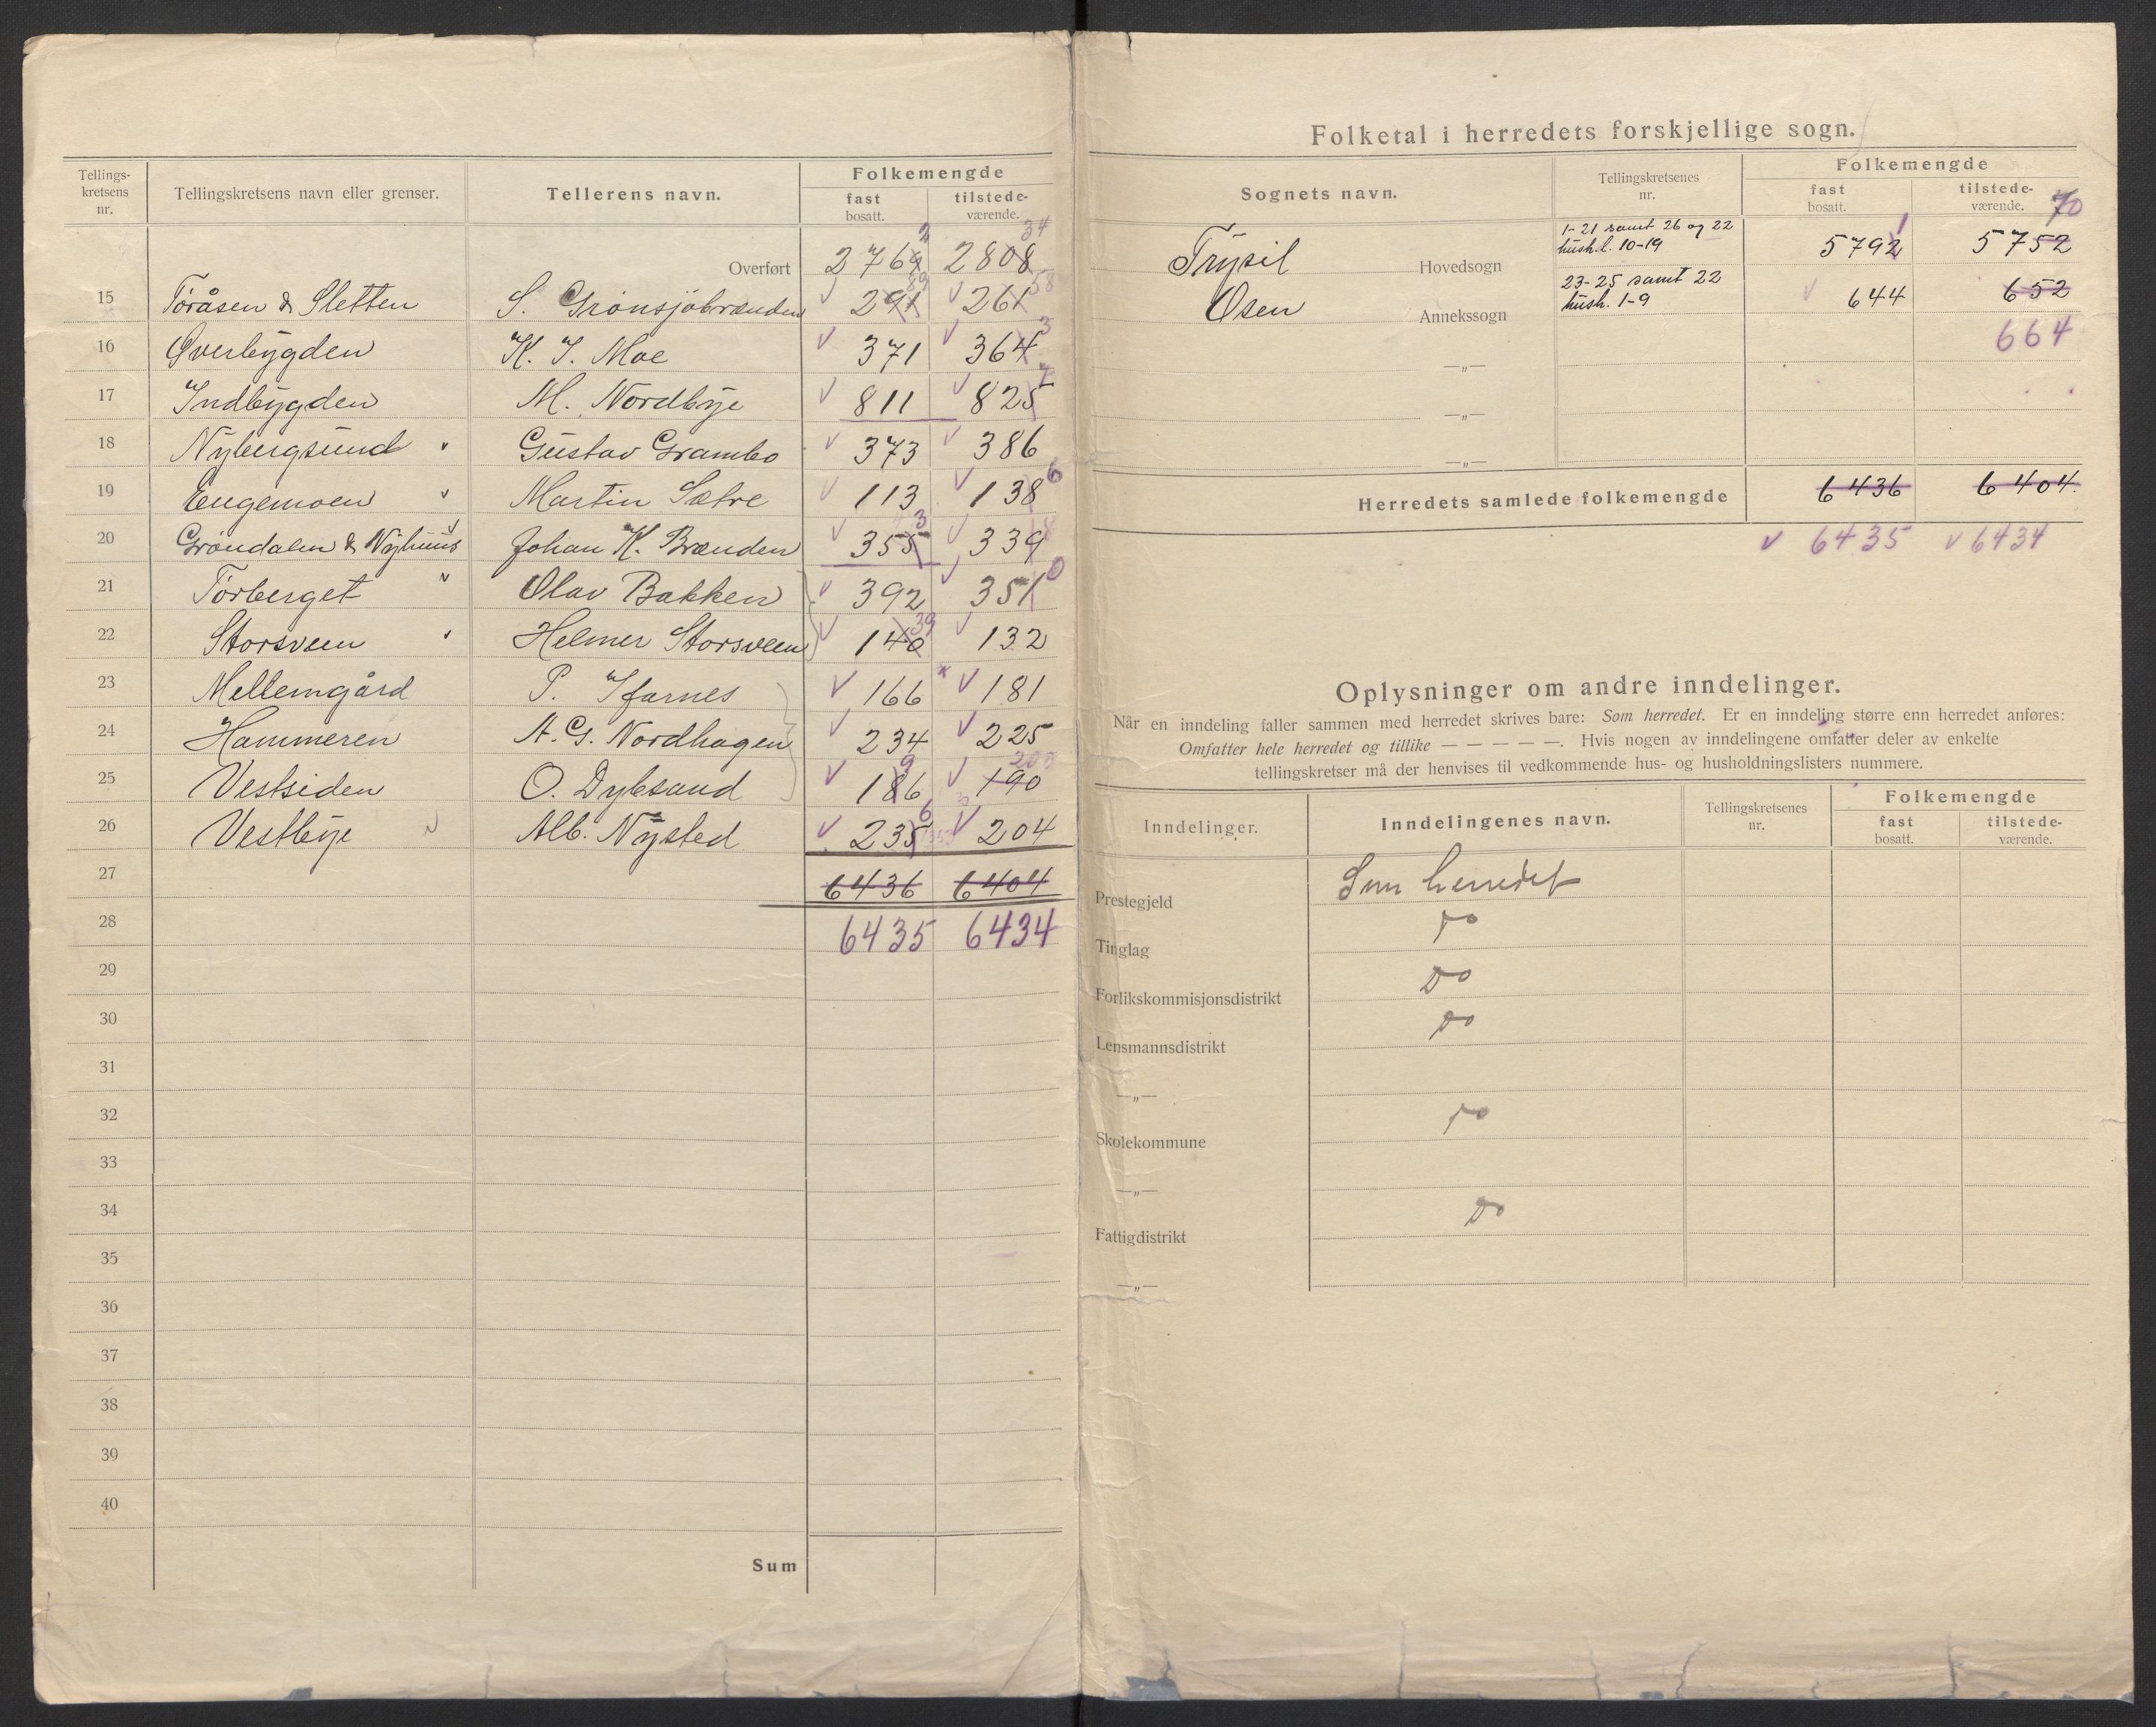 Tellings-
kretsens
nr.
Tellingskretsens navn eller grenser.
Tellerens navn.
Folkemengde
fast
bosatt.
tilstede-
værende.
2 34
Overført 2769 2808
89 58
15 Tøråsen & Sletten S. Grønsjøbrænden 291 261
3
16 Øverbygden K. J. Moe 371 364
7
17 Indbygden M. Nordbye 811 825
18 Nybergsund Gustav Grambo 373 386
6
19 Engemoen Martin Sætre 113 138
3 8
20 Grøndalen & Nyhuus Johan K. Brænden 355 339
0
21 Tørberget Olav Bakken 392 351
39
22 Storsveen Helmer Storsveen 140 132
23 Mellemgård P. 166 181
24 Hammeren A. G. Nordhagen 234 225
9 200
25 Vestsiden O. Dybsand 186 190
6
26 Vestbye Alb. Nysted 235 204
27 6436 6404
28 6435 6434
29
30
31
32
33
34
35
36
37
38
39
40
Sum
Folketal i herredets forskjellige sogn.
Sognets navn.
Tellingskretsenes
nr.
Folkemengde
fast
bosatt.
tilstede-
værende.
1 70
1-21 samt 26 og 22
hush.l. 10-19
Trysil Hovedsogn 5792 5752
23-25 samt 22
hush. 1-9
Osen Annekssogn 644 652
664
—„—
—„—
—„—
Herredets samlede folkemengde 6436 6404.
6435 6434
Oplysninger om andre inndelinger.
Når en inndeling faller sammen med herredet skrives bare: Som herredet. Er en inndeling større enn herredet anføres:
Omfatter hele herredet og tillike — — — — —. Hvis nogen av inndelingene omfatter deler av enkelte
tellingskretser må der henvises til vedkommende hus- og husholdningslisters nummere.
Inndelinger.
Inndelingenes navn.
Tellingskretsenes
nr.
Folkemengde
fast
bosatt.
tilstede-
værende.
Prestegjeld Som herredet
Tinglag Do
Forlikskommisjonsdistrikt Do
Lensmannsdistrikt Do
—„—
Skolekommune Do
—„—
Fattigdistrikt Do
—„—